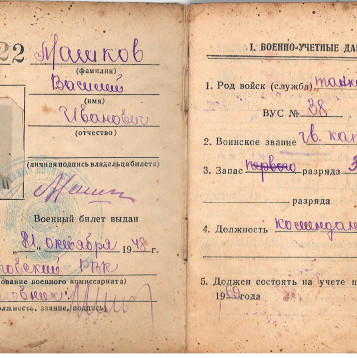 22
Машков
(фамилия)
Василий
(имя)
Иванович
(отчество)
(личная подпись владельца билета)
Военный билет выдан
21 октября 1948 г.
овский РВК
ование военного комиссариата)
олжность, звание, подпись)
I. ВОЕННО-УЧЕТНЫЕ ДАН
1. Род войск (служба) танко
ВУС № 38
2. Воинское звание гв. кап
3. Запас первого разряда 3
разряда
4. Должность
5. Должен состоять на учете п
года